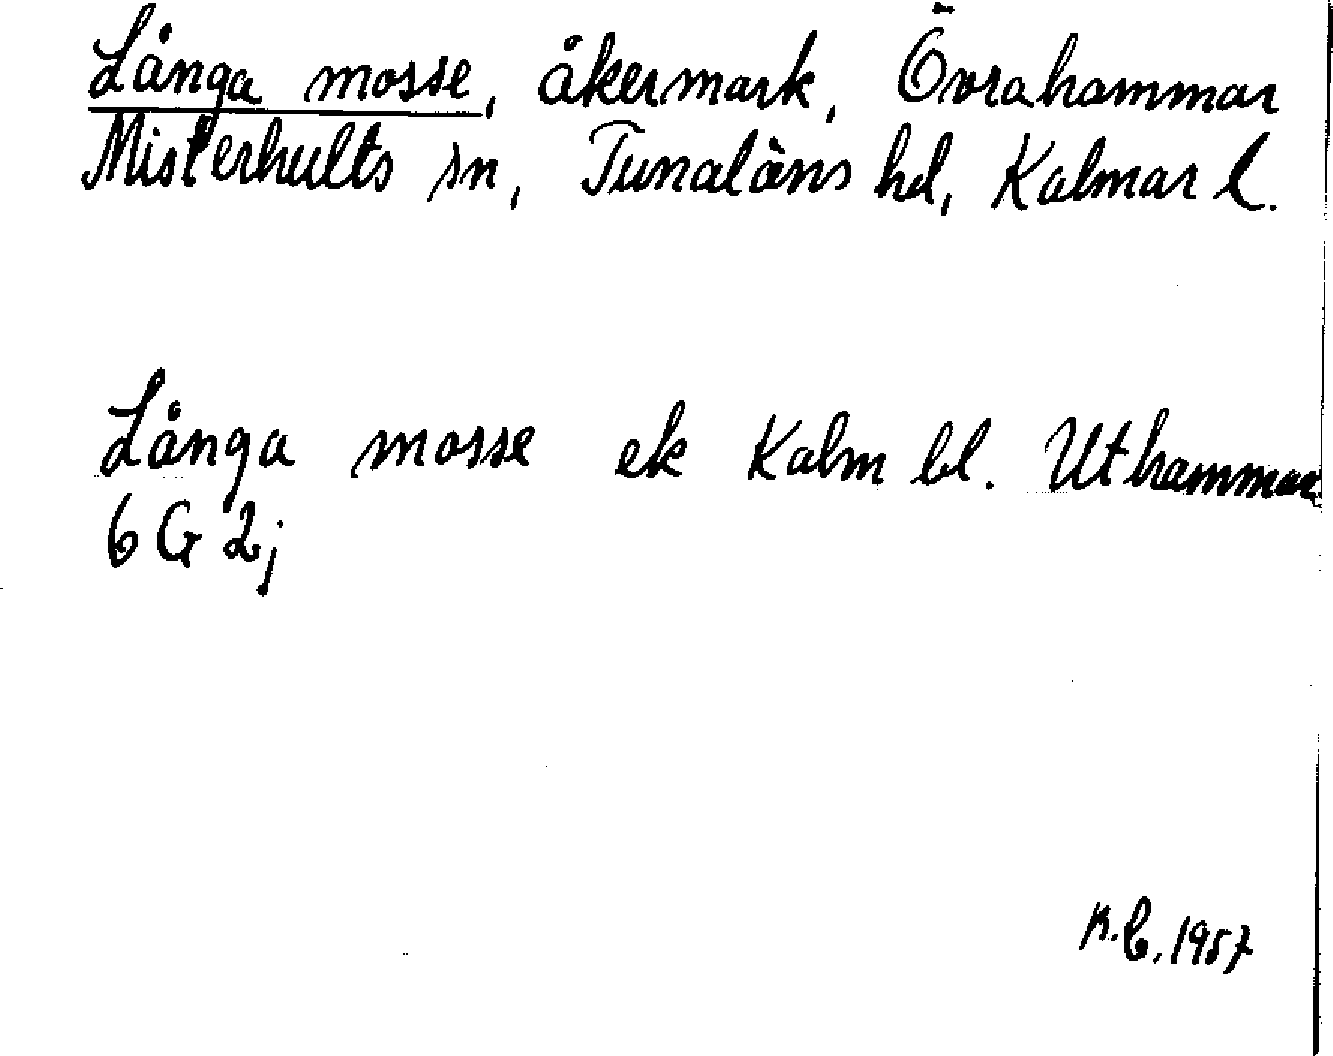 Långa mosse, åkermark, Övrahammar
Misterhults sn, Tunaläns hd, Kalmar l.
Långa mosse ek Kalm bl. Uthammar
6 G 2j
1957